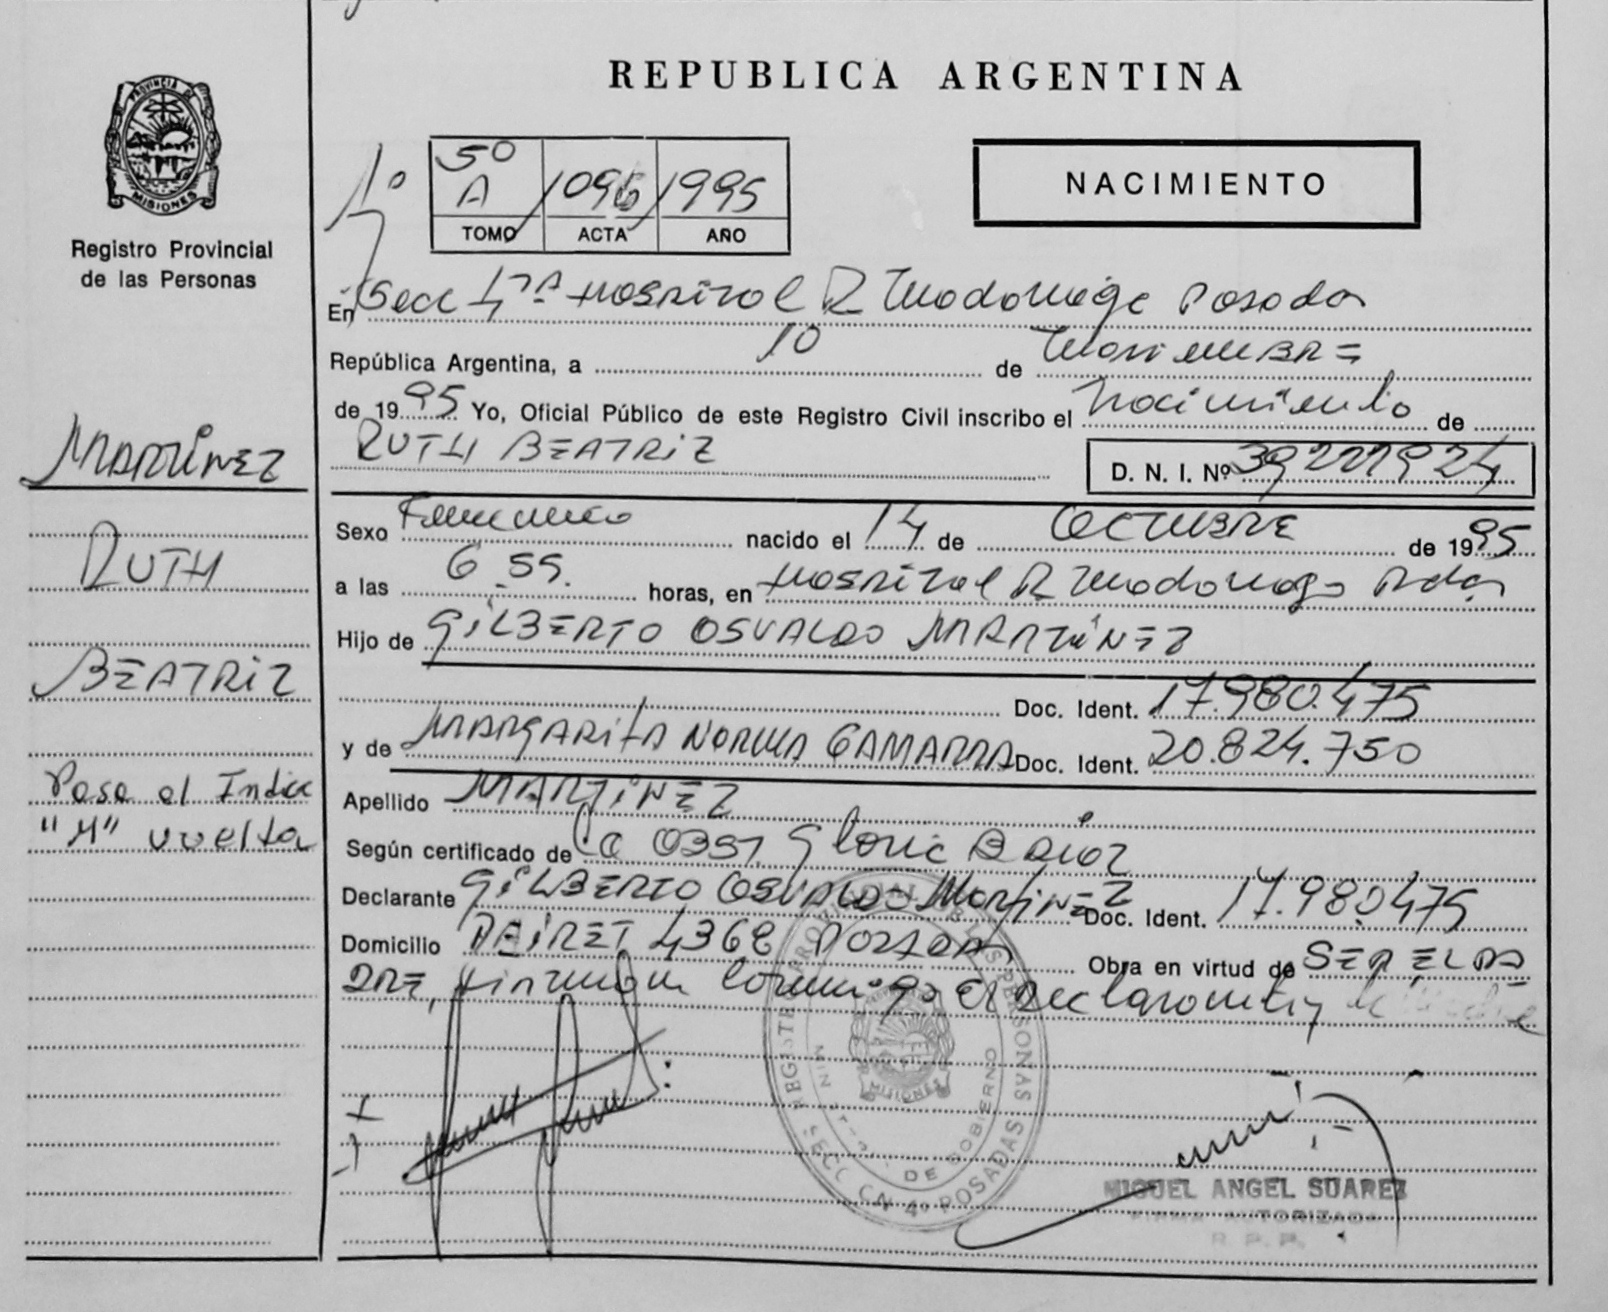 REPUBLICA ARGENTINA
PROVINCIA DE
MISIONES
Registro Provincial
de las Personas
1º
5º
A 1096 1995
TOMO ACTA AÑO
NACIMIENTO
En Secc 4ta Hospital R Madariaga Posadas
República Argentina, a 10 de Noviembre
de 1995 Yo, Oficial Público de este Registro Civil inscribo el Nacimiento de
RUTH BEATRIZ
D. N. I. Nº
MARTÍNEZ
RUTH
BEATRIZ
Pase al Indice
"M" vuelta
Sexo Femenino nacido el 14 de OCTUBRE de 1995
a las 6.55. horas, en Hospital R Madariaga Pdas
Hijo de GILBERTO OSVALDO MARTÍNEZ
Doc. Ident. 17.980.475
y de MARGARITA NORMA GAMARRA Doc. Ident. 20.824.750
Apellido MARTÍNEZ
Según certificado de Gloria
Declarante GILBERTO OSVALDO Martínez Doc. Ident. 17.980475
Domicilio PEIRET 4368 Posadas Obra en virtud de SER EL PA
DRE, Firman conmigo El Declarante y la
REGISTRO PROVINCIAL DE LAS PERSONAS
SECCION 4º POSADAS
DE GOBIERNO
MISIONES
MIGUEL ANGEL SUAREZ
FIRMA AUTORIZADA
R. P. P.